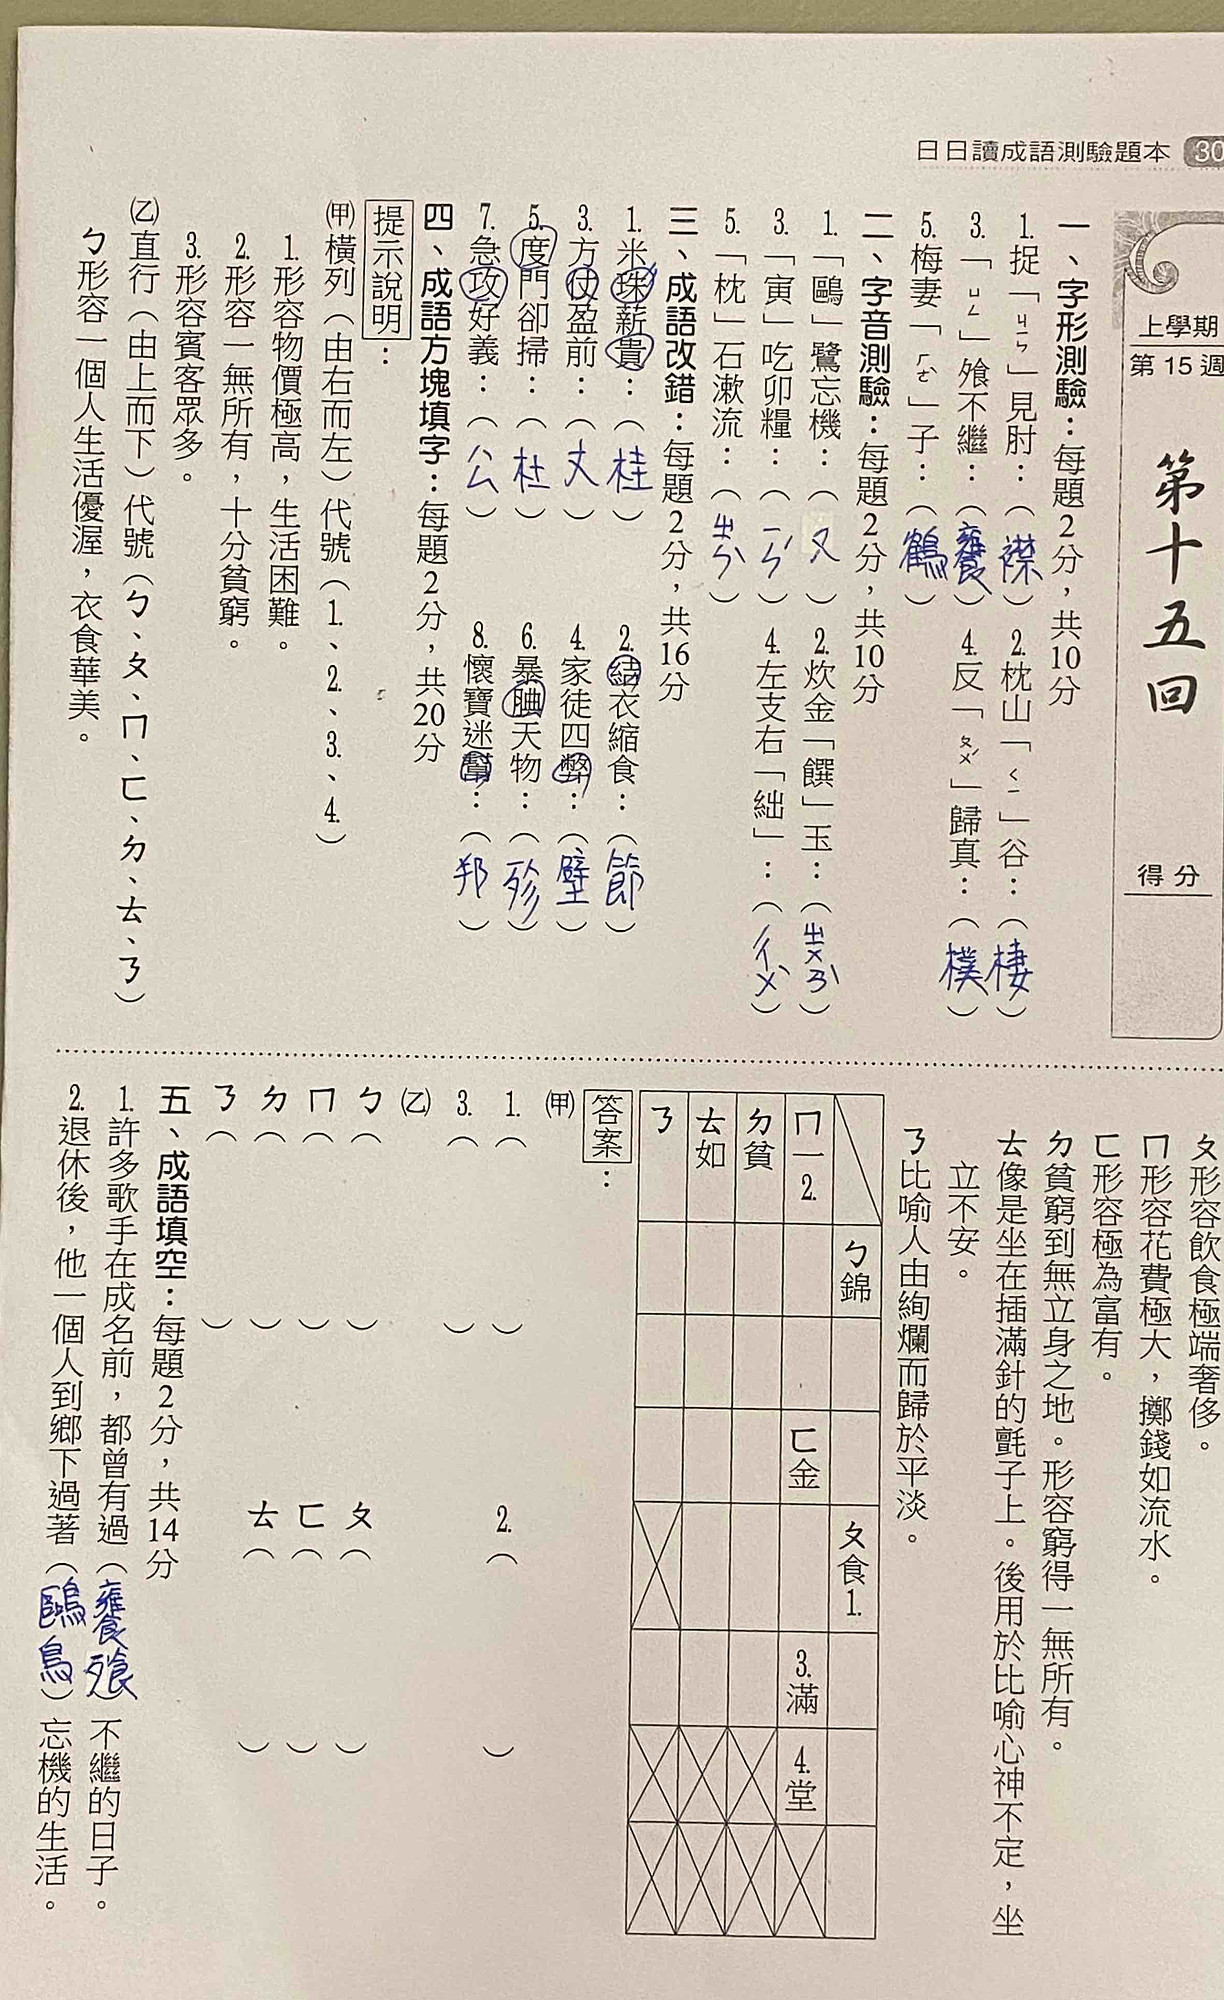 日日讀成語測驗題本 30
上學期
第15週
第十五回
得分
一、字形測驗：每題2分，共10分
1. 捉「ㄐㄧㄣ」見肘：（襟） 2. 枕山「ㄑㄧ」谷：（棲）
3.「ㄩㄥ」飧不繼：（饔） 4. 反「ㄆㄨˊ」歸真：（樸）
5. 梅妻「ㄏㄜˋ」子：（鶴）
二、字音測驗：每題2分，共10分
1.「鷗」鷺忘機：（ㄡ） 2. 炊金「饌」玉：（ㄓㄨㄢˋ）
3.「寅」吃卯糧：（ㄧㄣˊ） 4. 左支右「絀」：（ㄔㄨˋ）
5.「枕」石漱流：（ㄓㄣˋ）
三、成語改錯：每題2分，共16分
1. 米珠薪貴：（桂） 2. 結衣縮食：（節）
3. 方仗盈前：（丈） 4. 家徒四弊：（壁）
5. 度門卻掃：（杜） 6. 暴腆天物：（殄）
7. 急攻好義：（公） 8. 懷寶迷幫：（邦）
四、成語方塊填字：每題2分，共20分
提示說明：
㈙橫列（由右而左）代號（1.、2.、3.、4.）
1. 形容物價極高，生活困難。
2. 形容一無所有，十分貧窮。
3. 形容賓客眾多。
㈚直行（由上而下）代號（ㄅ、ㄆ、ㄇ、ㄈ、ㄉ、ㄊ、ㄋ）
ㄅ形容一個人生活優渥，衣食華美。
ㄆ形容飲食極端奢侈。
ㄇ形容花費極大，擲錢如流水。
ㄈ形容極為富有。
ㄉ貧窮到無立身之地。形容窮得一無所有。
ㄊ像是坐在插滿針的氈子上。後用於比喻心神不定，坐
立不安。
ㄋ比喻人由絢爛而歸於平淡。
ㄅ錦 ㄆ食1.
ㄇ一2. ㄈ金 3.滿 4.堂
ㄉ貧
ㄊ如
ㄋ
答案：
㈙
1.（ ） 2.（ ）
3.（ ）
㈚
ㄅ（ ） ㄆ（ ）
ㄇ（ ） ㄈ（ ）
ㄉ（ ） ㄊ（ ）
ㄋ（ ）
五、成語填空：每題2分，共14分
1. 許多歌手在成名前，都曾有過（饔飧）不繼的日子。
2. 退休後，他一個人到鄉下過著（鷗鳥）忘機的生活。